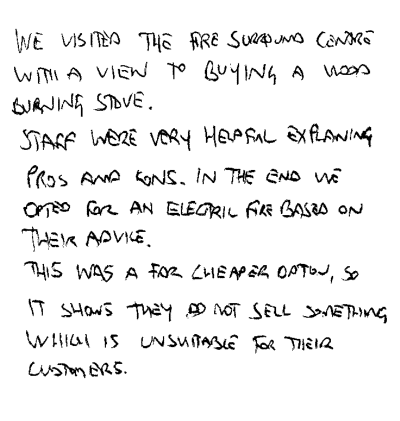 WE VISITED THE FIRE SURROUND CENTRE
WITH A VIEW TO BUYING A WOOD
BURNING STOVE.
STAFF WERE VERY HELPFUL EXPLANING
PROS AND CONS. IN THE END WE
OPTED FOR AN ELECTRIC FIRE BASED ON
THEIR ADVICE.
THIS WAS A FAR CHEAPER OPTION, SO
IT SHOWS THEY DO NOT SELL SOMETHING
WHICH IS UNSUITABLE FOR THEIR
CUSTOMERS.